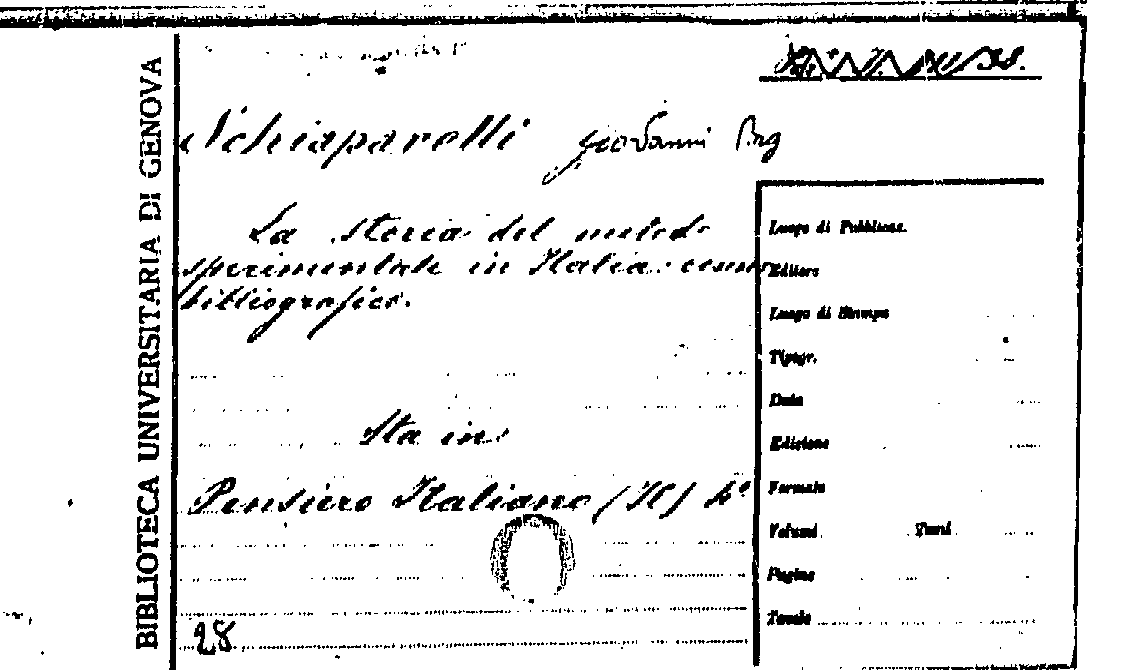 BIBLIOTECA UNIVERSITARIA DI GENOVA
Schiaparelli Giovanni
La storia del metodo
sperimentale in Italia: cenno
bibliografico.
Sta in:
Pensiero Italiano (Il)
28
Luogo di Pubblicaz.
Editore
Luogo di Stampa
Tipogr.
Data
Edizione
Formato
Volumi Tomi
Pagine
Tavole